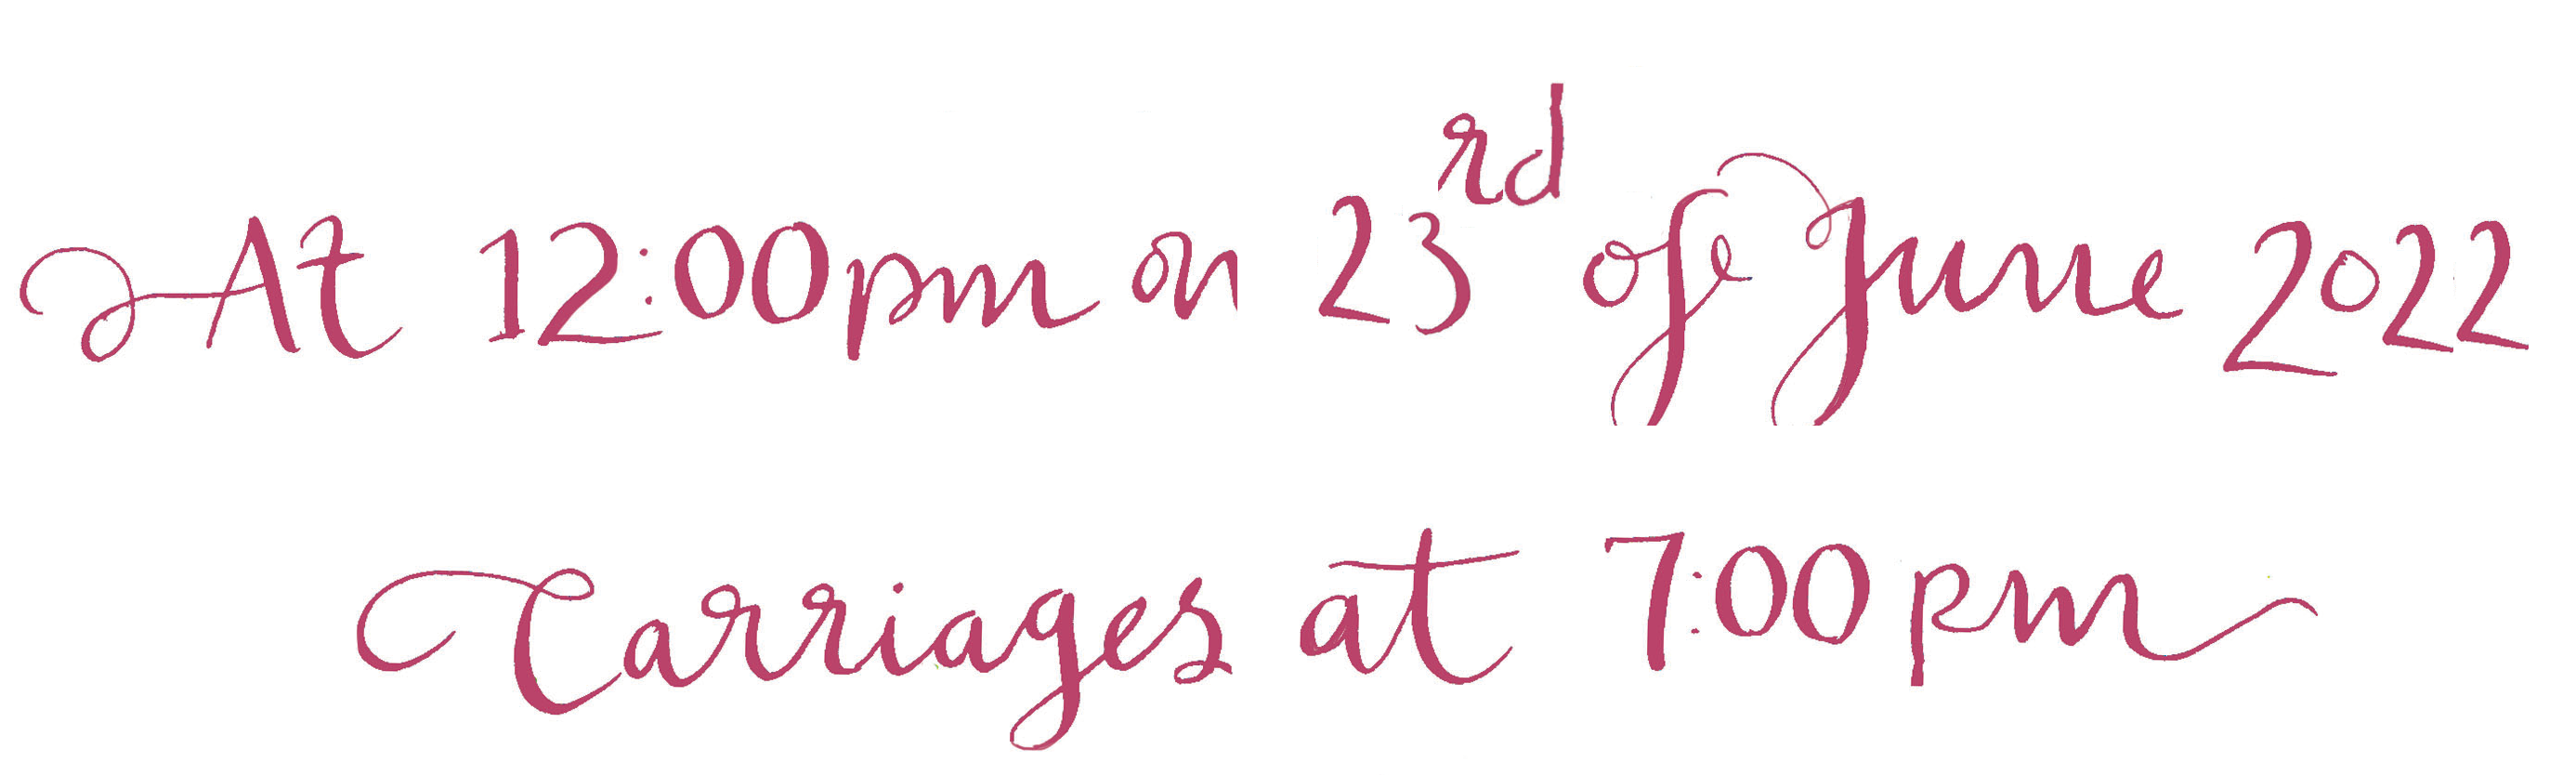 At 12:00pm on 23rd of June 2022
Carriages at 7:00pm